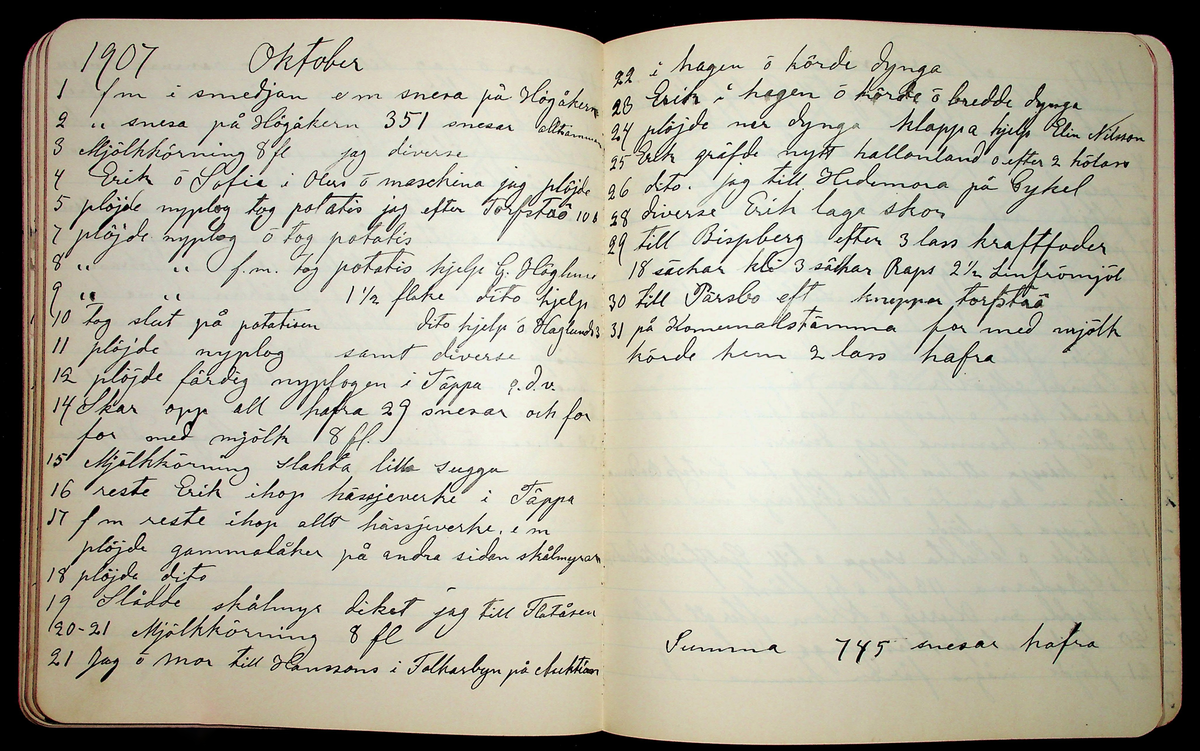 1907 Oktober
1 f m i smedjan e m snesa på Högåkern
2 " snesa på Högåkern 351 snesar
3 Mjölkkörning 8 fl jag diverse
4 Erik ö Sofia i Olers ö maschina jag plöjde
5 plöjde nyplog tog potatis jag efter Torfströ 10
7 plöjde nyplog ö tog potatis
8 " " f.m. tog potatis hjelp G. Höglund
9 " " 1 1/2 flake dito hjelp
10 tog slut på potatisen dito hjelp ö Haglunds 3
11 plöjde nyplog samt diverse
12 plöjde färdig nyplogen i Täppa o. d. v.
14 Skar opp all hafra 29 snesar och for
for med mjölk 8 fl.
15 Mjölkkörning slakta lilla sugga
16 reste Erik ihop hässjeverke i Täppa
17 f m reste ihop allt hässjeverke. e m
plöjde gammalåker på andra sidan skålmyran
18 plöjde dito
19 Slådde skålmyr diket jag till Flatåsen
20-21 Mjölkkörning 8 fl
21 Jag ö mor till Hanssons i Folkarbyn på Auktion
22 i hagen ö körde dynga
23 Erik i hagen ö körde ö bredde dynga
24 plöjde ner dynga klappa hjelp Elin Nilsson
25 Erik gräfde nytt hallonland ö efter 2 hölass
26 dito. jag till Hedemora på Cykel
28 diverse Erik laga skor
29 till Bispberg efter 3 lass kraftfoder
18 säckar kli 3 säckar Raps 2 1/2 Linfrömjöl
30 till Pärsbo eft kneppar torfströ
31 på Komunalstämma for med mjölk
körde hem 2 lass hafra
Summa 745 snesar hafra